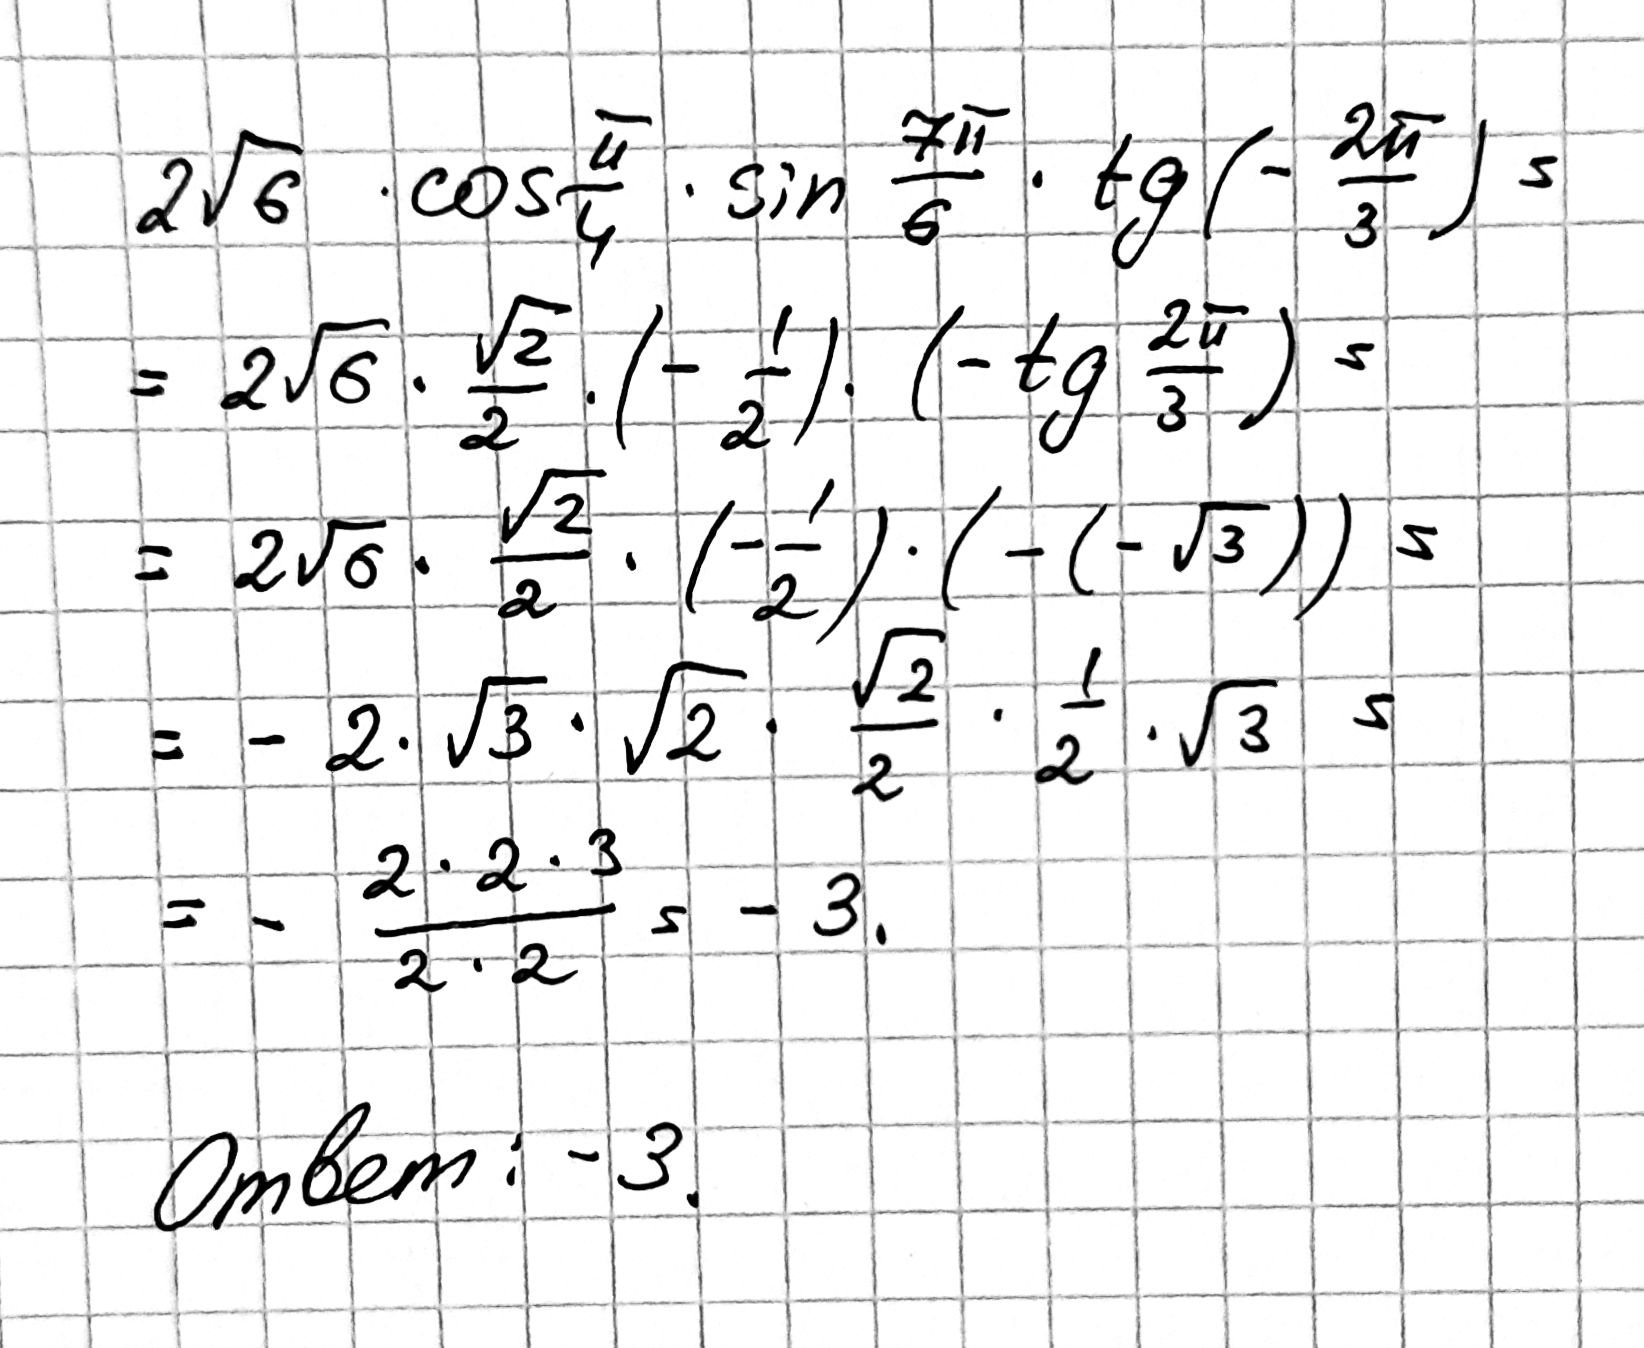 2√6 · cos π/4 · sin 7π/6 · tg(- 2π/3) =
= 2√6 · √2/2 · (- 1/2) · (- tg 2π/3) =
= 2√6 · √2/2 · (- 1/2) · (- (- √3)) =
= - 2 · √3 · √2 · √2/2 · 1/2 · √3 =
= - (2 · 2 · 3)/(2 · 2) = - 3.
Ответ: - 3.